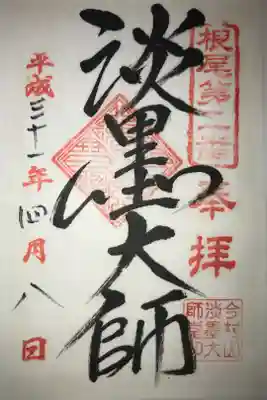 根尾第二番
奉拝
淡墨大師
平成三十一年四月八日
今村山
淡墨大
師堂印